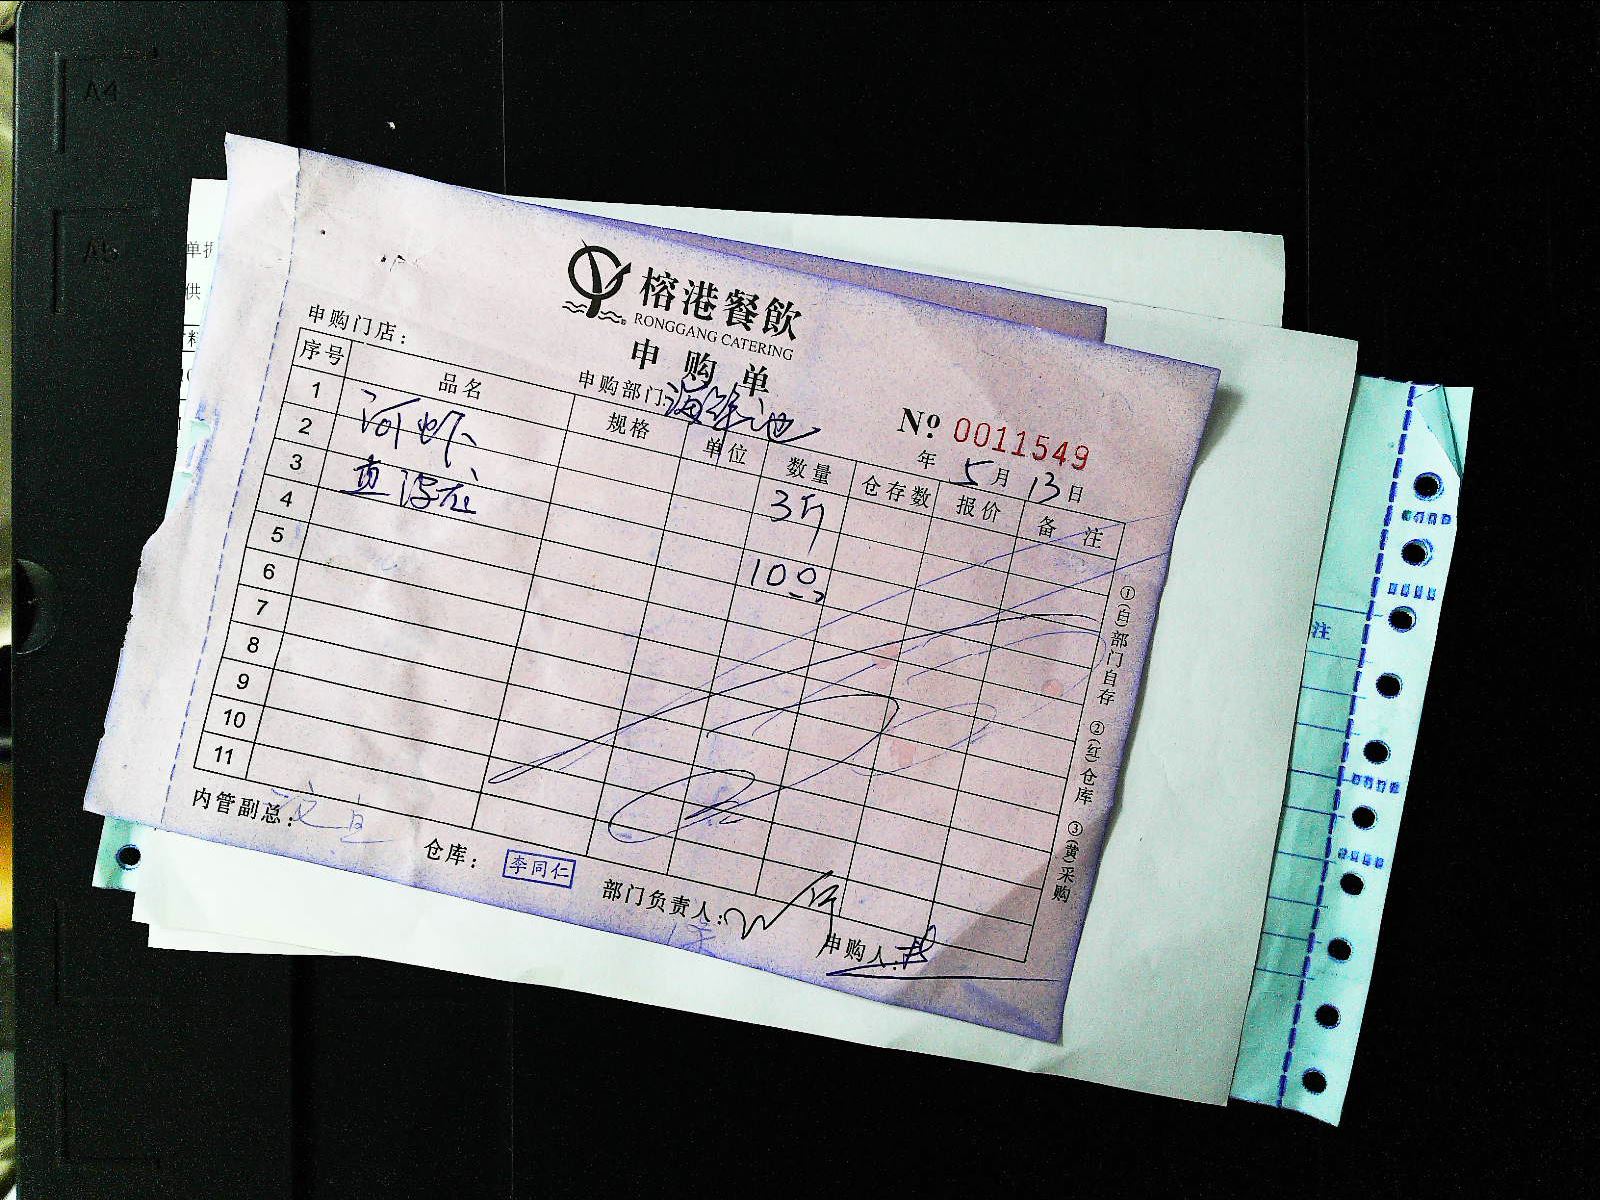 A4
A5
单据
供
榕港餐飲
RONGGANG CATERING
申购单
申购门店：
申购部门：海鲜池
No 0011549
年 5 月 13 日
序号 品名 规格 单位 数量 仓存数 报价 备注
1 河虾 3斤
2
3 100
4
5
6
7
8
9
10
11
①(白)部门自存 ②(红)仓库 ③(黄)采购
内管副总：
仓库：李同仁
部门负责人：
申购人：
注